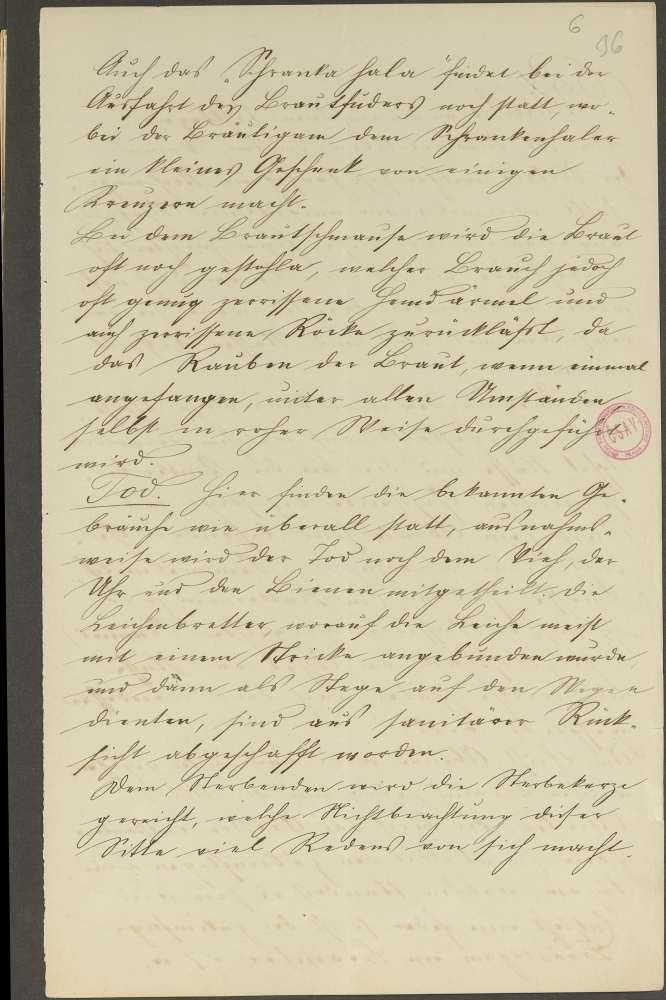 6
96
Auch das „Schranka hala" findet bei der
Ausfahrt des Brautfuders noch statt, wo-
bei der Bräutigam dem Schrankenhaler
ein kleines Geschenk von einigen
Kreuzern macht.
Bei dem Brautschmause wird die Braut
oft noch gestohla, welcher Brauch jedoch
oft genug zerrissene Hemdärmel und
auch zerrissene Röcke zurückläßt, da
das Rauben der Braut, wenn einmal
angefangen, unter allen Umständen
selbst in roher Weise durchgeführt
wird.
Tod. Hier finden die bekannten Ge-
bräuche wie überall statt, ausnahms-
weise wird der Tod noch dem Vieh, der
Uhr und den Bienen mitgetheilt. Die
Leichenbretter, worauf die Leiche meist
mit einem Stricke angebunden wurde,
und dann als Stege auf den Wegen
dienten, sind aus sanitärer Rück-
sicht abgeschafft worden.
Dem Sterbenden wird die Sterbekerze
gereicht, welche Nichtbeachtung dieser
Sitte viel Redens von sich macht.
ČSAV